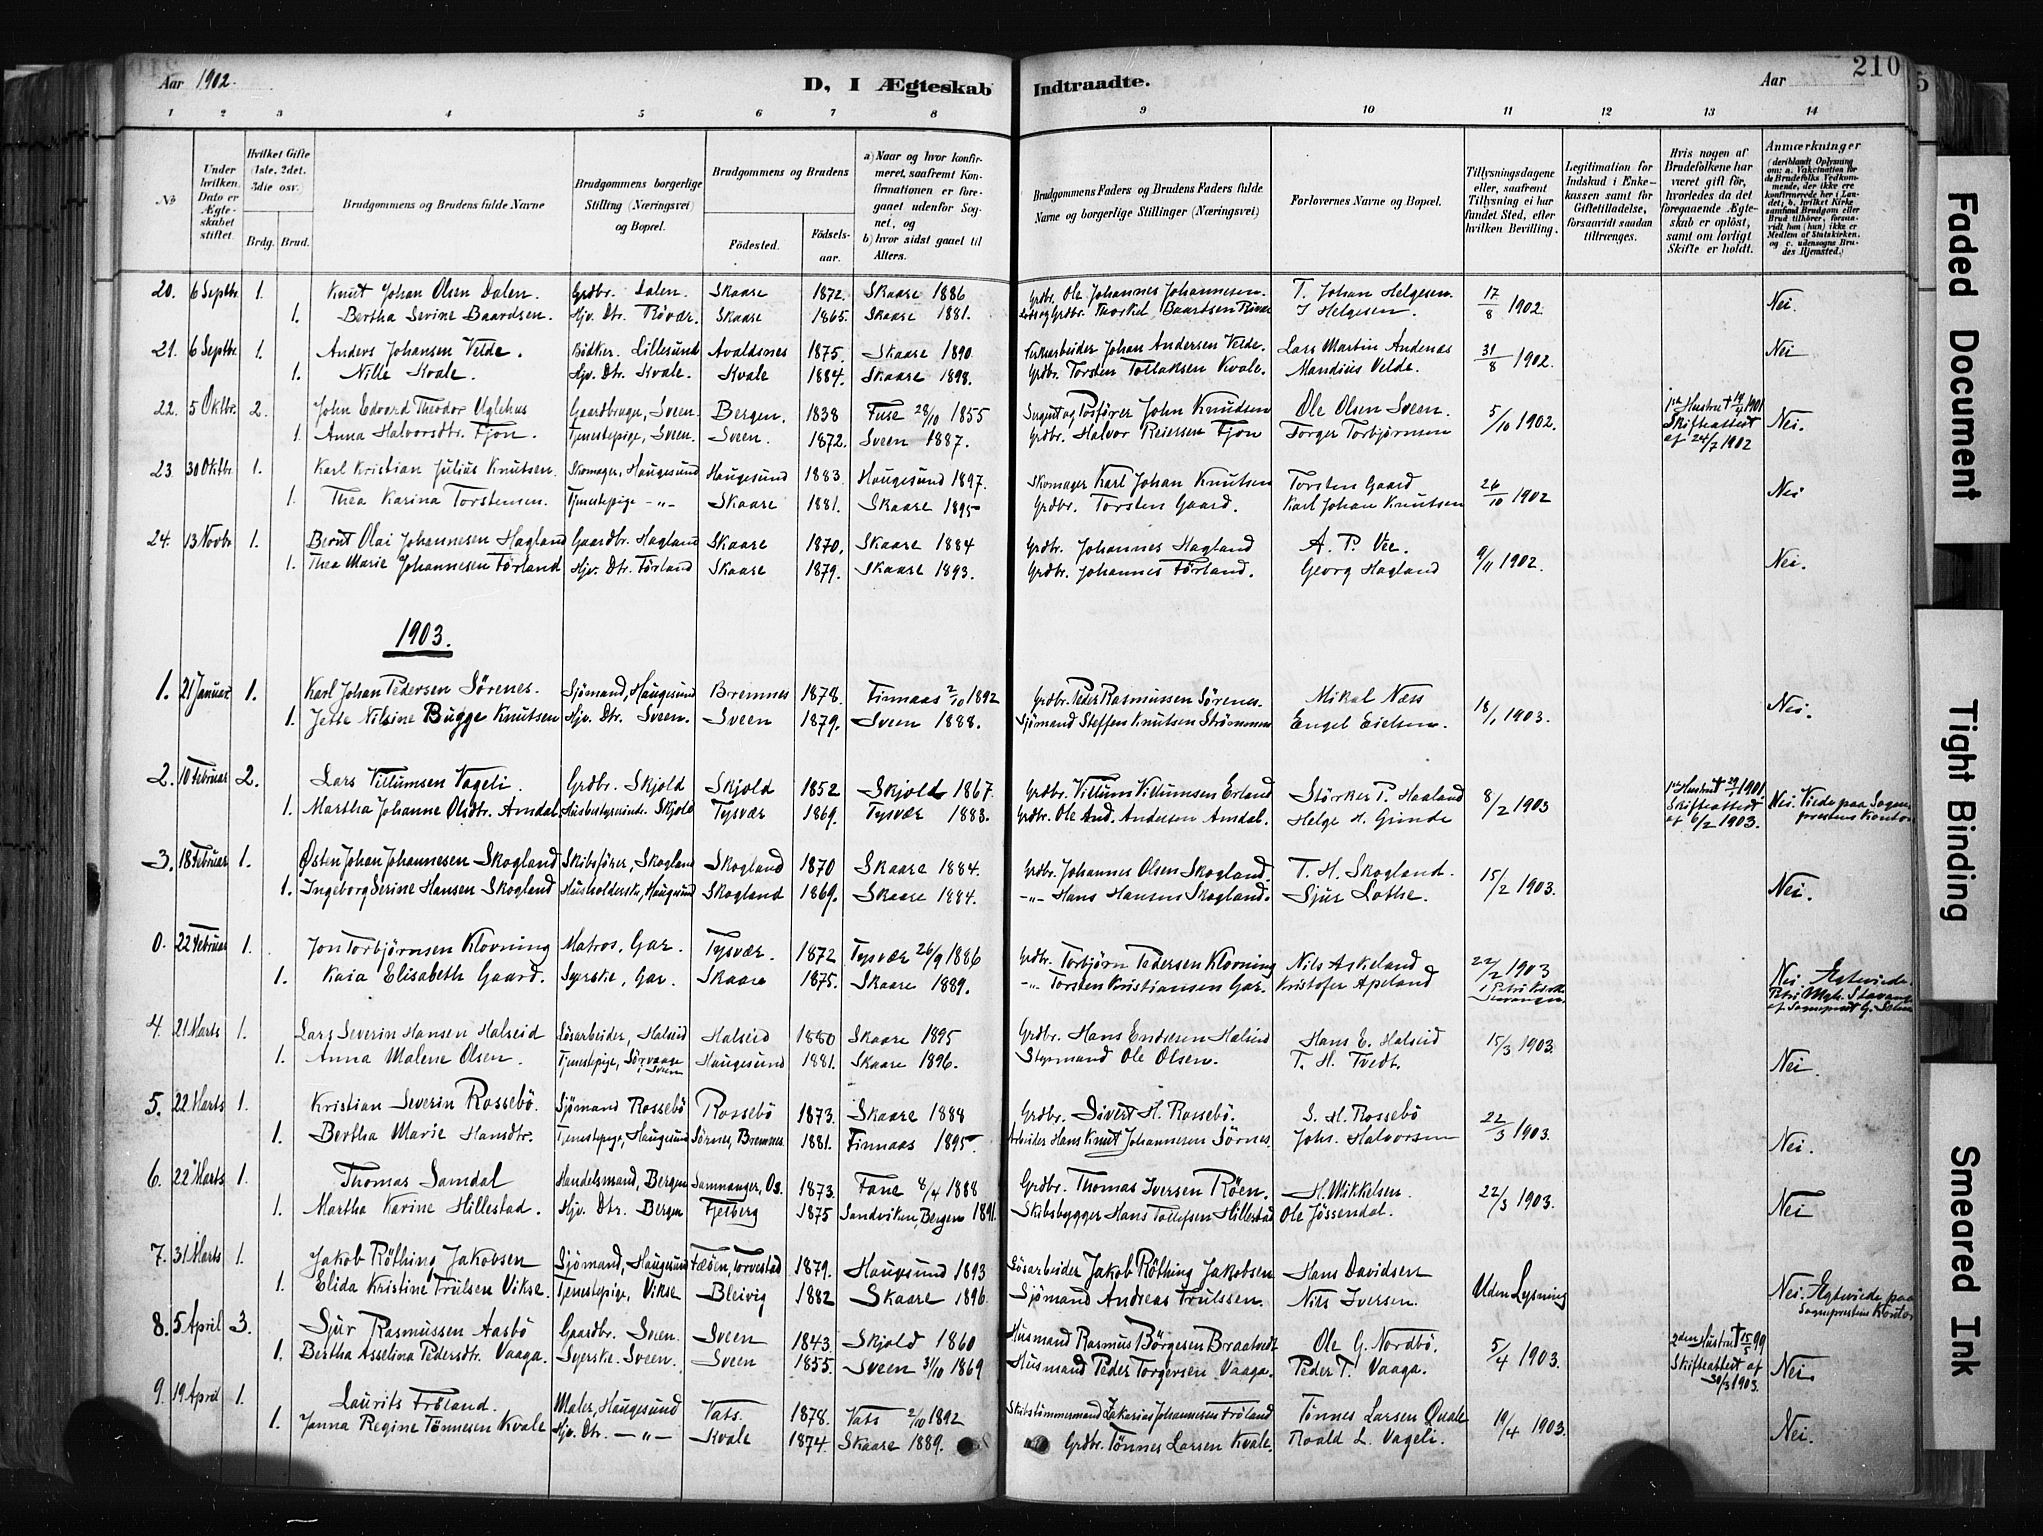 Aar 1902.
D, I Ægteskab Indtraadte.
Aar
210
1 2 3 4 5 6 7 8 9 10 11 12 13 14
No
Under hvilken Dato er Ægteskabet stiftet.
Hvilket Gifte (1ste, 2det, 3die osv.)
Brdg. Brud.
Brudgommens og Brudens fulde Navne
Brudgommens borgerlige Stilling (Næringsvei) og Bopæl.
Brudgommens og Brudens
Fødested.
Fødselsaar.
a) Naar og hvor konfirmeret, saafremt Konfirmationen er foregaaet udenfor Sognet, og
b) hvor sidst gaaet til Alters.
Brudgommens Faders og Brudens Faders fulde Navne og borgerlige Stillinger (Næringsvei)
Forlovernes Navne og Bopæl.
Tillysningsdagene eller, saafremt Tillysning ei har fundet Sted, efter hvilken Bevilling.
Legitimation for Indskud i Enkekassen samt for Giftetilladelse, forsaavidt saadan tiltrænges.
Hvis nogen af Brudefolkene har været gift før, hvorledes da det foregaaende Ægteskab er opløst, samt om lovligt Skifte er holdt.
Anmærkninger
(deriblandt Oplysning om: a. Vaccination for de Brudefolks Vedkommende, der ikke ere konfirmerede her i Landet; b. hvilket Kirkesamfund Brudgom eller Brud tilhører, forsaavidt han (hun) ikke er Medlem af Statskirken, og c. udensogns Brudes Hjemsted.)
20. 6 Septbr. 1. Knut Johan Olsen Dalen. Grdbr. Dalen. Skaare 1872. Skaare 1886 Grdbr. Ole Johannes Johannesen. T. Johan Helgesen. 17/8 1902. Nei.
1. Bertha Serine Baardsen. Hjv. Dtr. Røvær. Skaare 1865. Skaare 1881. Grdbr. Thorkel Baardsen J Helgesen.
21. 6 Septbr. 1. Anders Johansen Velde. Bødker. Lillesund Avaldsnes 1875. Skaare 1890. Johan Andersen Velde. Lars Martin Andenæs 31/8 1902. Nei
1. Nille Kvale. Hjv. Dtr. Kvale. Kvale 1884. Skaare 1898. Grdbr. Torsten Tollaksen Kvale. Mandius Velde.
22. 5 Oktbr. 2. John Edvard Theodor Uglehus Gaardbruger, Sveen. Bergen. 1838 Fuse 28/10 1855 John Knudsen Ole Olsen Sveen. 5/10 1902. 1ste Hustru † 1901 Skifteattest af 24/7 1902 Nei.
1. Anna Halvorsdtr. Fjon. Tjenestepige, Sveen. Sveen. 1872. Sveen 1887. Grdbr. Halvor Reiersen Fjon Torger Torbjørnsen
23 30 Oktbr. 1. Karl Kristian Julius Knutsen. Skomager, Haugesund Haugesund 1883. Haugesund 1897. Skomager Karl Johan Knutsen Torsten Gaard 26/10 1902 Nei
1. Thea Karina Torstensen. Tjenestepige -"- Skaare 1881. Skaare 1895 Grdbr. Torsten Gaard. Karl Johan Knutsen
24. 13 Novbr. 1. Bernt Olai Johannesen Hagland Gaardbr. Hagland Skaare 1870. Skaare 1884 Grdbr. Johannes Hagland A. P. Vee. 9/11 1902. Nei.
1. Thea Marie Johannesen Førland Hjv. Dtr. Førland Skaare 1879. Skaare 1893. Grdbr. Johannes Førland. Georg Hagland
1903.
1. 21 Januar 1. Karl Johan Pedersen Sørenes. Sjømand, Haugesund Bremnes 1878. Finnaas 2/10 1892 Grdbr. Peder Rasmussen Sørenes. Mikal Næss 18/1 1903. Nei.
1. Jette Nilsine Bugge Knutsen Hjv. Dtr. Sveen. Sveen 1879. Sveen 1888. Sjømand Steffen Knutsen Strømmen Engel Eielsen.
2. 10 Februar 2. Lars Villumsen Vågeli. Grdbr. Skjold Skjold 1852 Skjold 1867. Grdbr. Villum Villumsen Erland Størker P. Haaland 8/2 1903 1ste Hustru † 1901 Skifteattest af 6/2 1903. Nei. Viede paa Sogneprestens Kontor
1. Martha Johanne Olsdtr. Amdal Husbestyrerinde. Skjold Tysvær 1869. Tysvær 1883. Grdbr. Ole And. Andersen Amdal. Helge H. Grinde
3. 18 Februar 1. Østen Johan Johannesen Skogland Skibsfører, Skogland Skogland 1870 Skaare 1884. Grdbr. Johannes Olsen Skogland. T. H. Skogland. 15/2 1903. Nei.
1. Ingeborg Serine Hansen Skogland Husholderske, Haugesund Skogland 1869. Skaare 1884. -"- Hans Hansen Skogland. Sjur Lothe.
0. 22 Februar 1. Jon Torbjørnsen Klovning Matros, Gar. Tysvær. 1872 Tysvær 26/9 1886 Grdbr. Torbjørn Pedersen Klovning Nils Askeland 22/2 1903 i Petri Kirke Stavanger Nei. Egteviede Petri Mgh. Stavanger af Sogneprest
1. Kaia Elisabeth Gaard. Syerske, Gar. Skaare 1875. Skaare 1889. -"- Torsten Kristiansen Gar. Kristofer Apeland
4 21 Marts 1. Lars Severin Hansen Halseid Løsarbeider, Halseid Halseid 1880 Skaare 1895 Grdbr. Hans Endresen Halseid Hans E. Halseid 15/3 1903. Nei.
1. Anna Malene Olsen. Tjenestepige, Sørvaage i Sveen Haugesund 1881. Skaare 1896. Styrmand Ole Olsen. T. H. Tvedt.
5. 22 Marts 1. Kristian Severin Rossebø. Sjømand Rossebø Rossebø 1873. Skaare 1888 Grdbr. Sivert H. Rossebø. S. H. Rossebø 22/3 1903. Nei.
1. Bertha Marie Hansdtr. Tjenestepige, Haugesund Sørnes, Bremnes 1881. Finnaas 1895. Arbeider Hans Knut Johannesen Sørnes. Johs. Halvorsen
6. 22 Marts 1. Thomas Samdal Handelsmand, Bergen Samnanger, Os. 1873. Fane 8/4 1888 Grdbr. Thomas Iversen Røen. H. Mikkelsen. 22/3 1903. Nei
1. Martha Karine Hillestad. Hjv. Dtr. Bergen Fjelberg 1875 Sandviken, Bergen 1891. Skibsbygger Hans Tollefsen Hillestad Ole Jøssendal.
7. 31 Marts 1. Jakob Røthing Jakobsen Sjømand, Haugesund Fæøen, Torvestad 1879. Haugsund 1893 Løsarbeider Jakob Røthing Jakobsen Hans Davidsen Uden Lysning Nei. Egteviede paa Sogneprestens Kontor
1. Elida Kristine Trulsen Vikse. Tjenestepige, Vikse Bleivig 1882 Skaare 1896. Sjømand Andreas Trulssen. Nils Iversen.
8. 5 April 3. Sjur Rasmussen Aasbø Gaardbr. Sveen. Sveen 1843. Skjold 1860 Husmand Rasmus Børgesen Braatvedt Ole G. Nordbø. 5/4 1903. 2den Hustru † 15/5 99 Skifteattest af 30/3 1903. Nei.
1. Bertha Asselina Pedersdtr. Vaaga. Syerske. Sveen. Sveen 1855. Sveen 31/10 1869 Husmand Peder Torgersen Vaaga. Peder T. Vaaga.
9. 19 April 1. Laurits Frøland. Maler, Haugesund Vats. 1878. Vats 2/10 1892 Skibstømmermand Zakarias Johannesen Frøland Tønnes Larsen Qvale 19/4 1903. Nei.
1. Janna Regine Tønnesen Kvale Hjv. Dtr. -"- Kvale 1874 Skaare 1889. Grdbr. Tønnes Larsen Kvale. Roald L. Vågeli.
Faded Document
Tight Binding
Smeared Ink